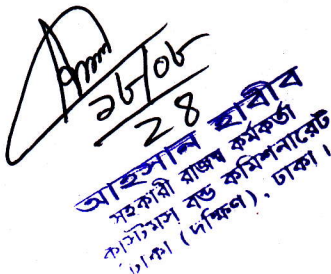 ২৮/০৮
২৪
আহসান হাবীব
সহকারী রাজস্ব কর্মকর্তা
কাস্টমস বন্ড কমিশনারেট
ঢাকা (দক্ষিণ), ঢাকা।